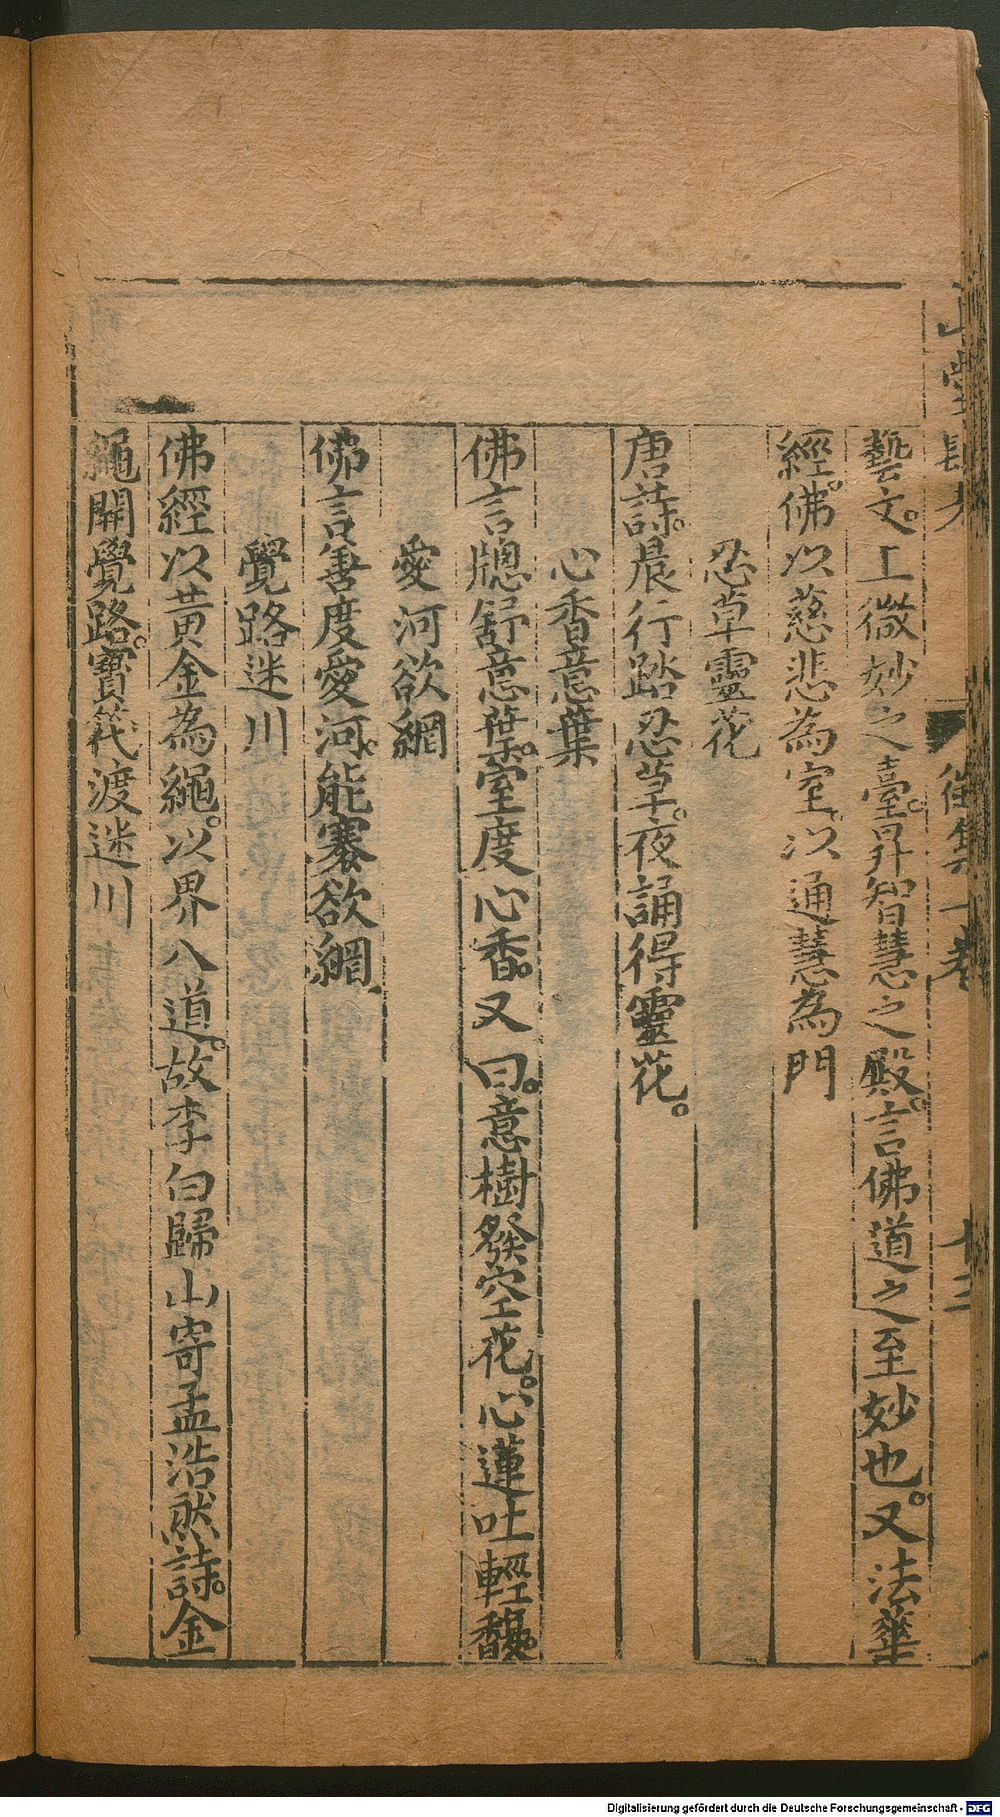 藝文。工微妙之臺。昇智慧之殿。言佛道之至妙也。又法華
經。佛以慈悲為室。以通慧為門
忍草靈花
唐詩。晨行踏忍草。夜誦得靈花。
心香意葉
佛言牕舒意葉。室度心香。又曰。意樹發空花。心蓮吐輕馥。
愛河欲網
佛言善度愛河。能褰欲網
覺路迷川
佛經以黃金為繩。以界八道。故李白歸山寄孟浩然詩。金
繩開覺路。寳筏渡迷川
Digitalisierung gefördert durch die Deutsche Forschungsgemeinschaft - DFG